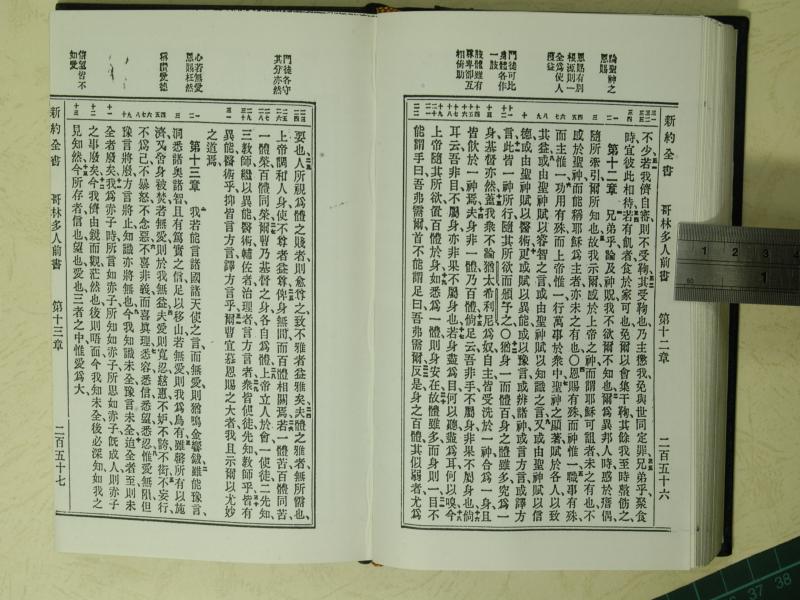 論聖神之恩賜
恩賜有別根源則一全為使人獲益
門徒可比身體各作一肢
肢體雖有尊卑卻互相倚助
新約全書 哥林多人前書 第十二章 二百五十六
不少、若我儕自審、則不受鞫、其受鞫也、乃主懲我、免與世同定罪、兄弟乎、聚食
時、宜彼此相待、若有飢者、食於家可也、免爾以會集干鞫、其餘我至時釐飭之、
第十二章 兄弟乎、論及神貺、我不欲爾不知也、爾為異邦人時、惑於瘖偶、
隨所牽引、爾所知也、故我示爾、感於上帝之神、而謂耶穌可詛者、未之有也、不
感於聖神、而能稱耶穌為主者、亦未之有也、〇恩賜有殊、而神惟一、職事有殊、
而主惟一、功用有殊、而上帝惟一、行萬事於衆中、聖神之顯著、賦於各人以致
其益、或由聖神賦以睿智之言、或由聖神賦以知識之言、又或由聖神賦以信
德、或由聖神賦以醫術、更或賦以異能、或以豫言、或以辨諸神、或言方言、或譯方
言、此皆一神所行、隨其所欲而頒予之、〇猶身一而體百、身之體雖多、究為一
身、基督亦然、蓋我衆不論猶太希利尼為奴自主、皆受洗於一神、合為一身、且
皆飲於一神焉、夫身非一體、乃百體、倘足云、吾非手、不屬身、非果不屬身也、倘
耳云、吾非目、不屬身、亦非果不屬身也、若身盡為目、何以聽、盡為耳、何以嗅、今
上帝隨其所欲、置百體於身、如悉為一體、則身安在、故體雖多、而身則一、目不
能謂手曰、吾弗需爾、首不能謂足曰、吾弗需爾、反是、身之百體、其似弱者、尤為
門徒各守其分亦然
心若無愛恩賜枉然
稱讚愛德
信望皆不如愛
要也、人所視為體之賤者、則愈尊之、致不雅者益雅矣、夫體之雅者、無所需也、
上帝調和人身、使不尊者益尊、俾身無間、而百體相關焉、若一體苦、百體同苦、
一體榮、百體同榮、爾曹乃基督之身、各自為體、上帝立人於會、一使徒、二先知、
三教師、繼以異能、醫術、輔佐者、治理者、言方言者、衆皆使徒、先知、教師乎、皆有
異能、醫術乎、抑皆言方言、譯方言乎、爾曹宜慕恩賜之大者、我且示爾以尤妙
之道焉、
第十三章 我若能言諸國諸天使之言、而無愛、則猶鳴金響鈸、雖能豫言、
洞悉諸奧諸智、且有篤實之信、足以移山、若無愛、則我為烏有、雖罄所有以施
濟、又舍身被焚者、無愛、則於我無益、夫愛則寬忍慈惠、不妒、不誇、不衒、不妄行、
不為己、不暴怒、不念惡、不喜非義、而喜真理、悉容、悉信、悉望、悉忍、惟愛無隕、但
豫言將廢、方言將止、知識亦將無也、今我知識未全、豫言未全、迨全者至、則未
全者廢矣、我為赤子時、所言如赤子、所知如赤子、所思如赤子、旣成人、則赤子
之事廢矣、今我儕由鏡而觀茫然也、後則晤面、今我知未全、後必深知如我之
見知然、今所存者、信也、望也、愛也、三者之中、惟愛為大、
新約全書 哥林多人前書 第十三章 二百五十七
1
2
3
4
36
37
38